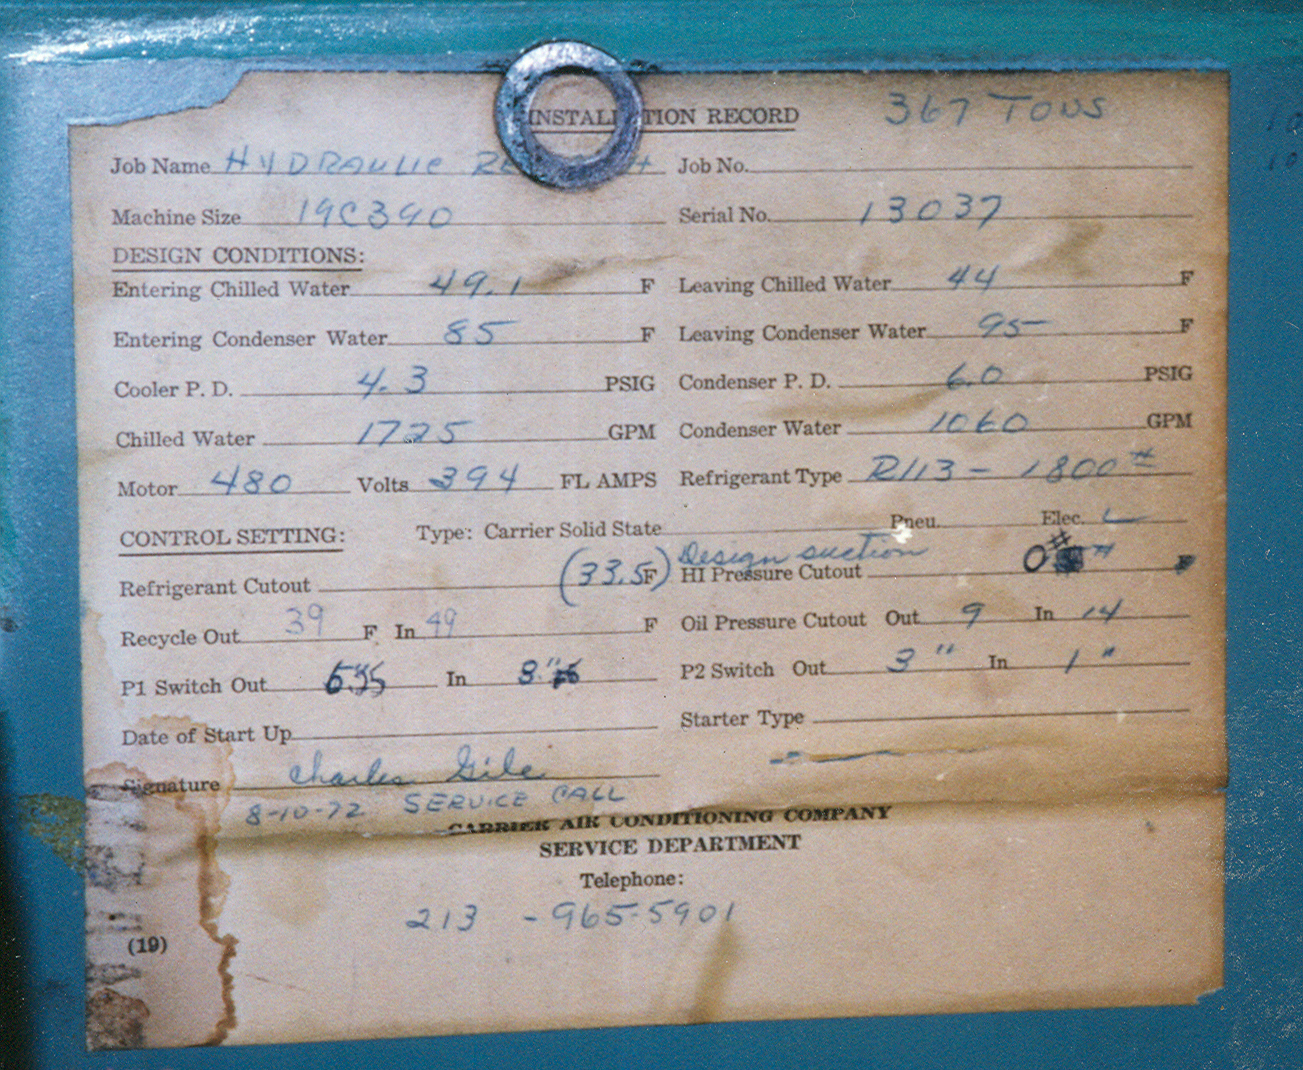 INSTALL TION RECORD 367 TONS
Job Name HYDRAULIC Job No.
Machine Size 19C390 Serial No. 13037
DESIGN CONDITIONS:
Entering Chilled Water 49.1 F Leaving Chilled Water 44 F
Entering Condenser Water 85 F Leaving Condenser Water 95 F
Cooler P. D. 4.3 PSIG Condenser P. D. 6.0 PSIG
Chilled Water 1725 GPM Condenser Water 1060 GPM
Motor 480 Volts 394 FL AMPS Refrigerant Type R113 - 1800 #
CONTROL SETTING: Type: Carrier Solid State Pneu. Elec.
Refrigerant Cutout (33.5F) Design suction HI Pressure Cutout
Recycle Out 39 F In 49 F Oil Pressure Cutout Out 9 In 14
P1 Switch Out In P2 Switch Out 3" In 1"
Date of Start Up Starter Type
Signature Charles Gile
8-10-72 SERVICE CALL
CARRIER AIR CONDITIONING COMPANY
SERVICE DEPARTMENT
Telephone:
213 - 965-5901
(19)